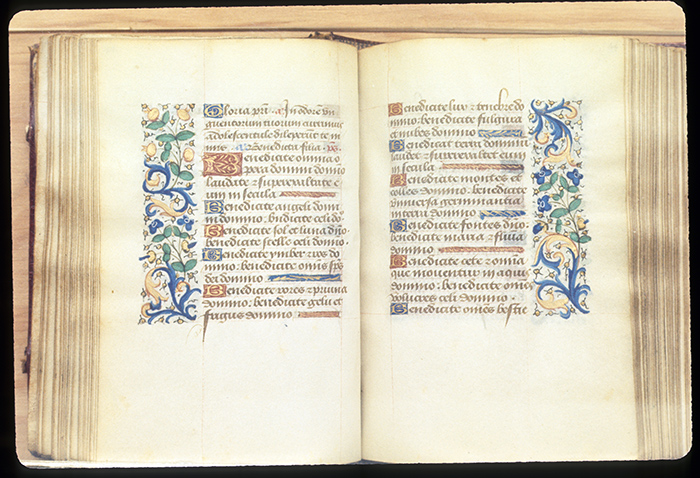 Gloria pri. a. In odorem un
guentorum tuorum currimus
adolescentule dilexerunt te ni
mis. Benedicta filia. ps.
Benedicite omnia o
pera domini domino
laudate z superexaltate e
um in secula
Benedicite angeli domi
ni domino: bndicite celi do.
Benedicite sol et luna dno
benedicite stelle celi domino.
Benedicite ymber z ros do
mino: benedicite omis spi
dei domino
Benedicite ignis
domino: benedicite gelu et
frigus domino
Benedicite lux z tenebre do
mino: benedicite fulgura
et nubes domino
Benedicat terra dominum
laudet z superexaltet eum
in secula
Benedicite montes et
colles domino: benedicite
universa germinantia
in terra domino
Benedicite fontes dno:
benedicite maria z flumina
domino
Benedicite cete z omnia
que moventur in aquis
domino: benedicite omes
volucres celi domino.
Benedicite omes bestie